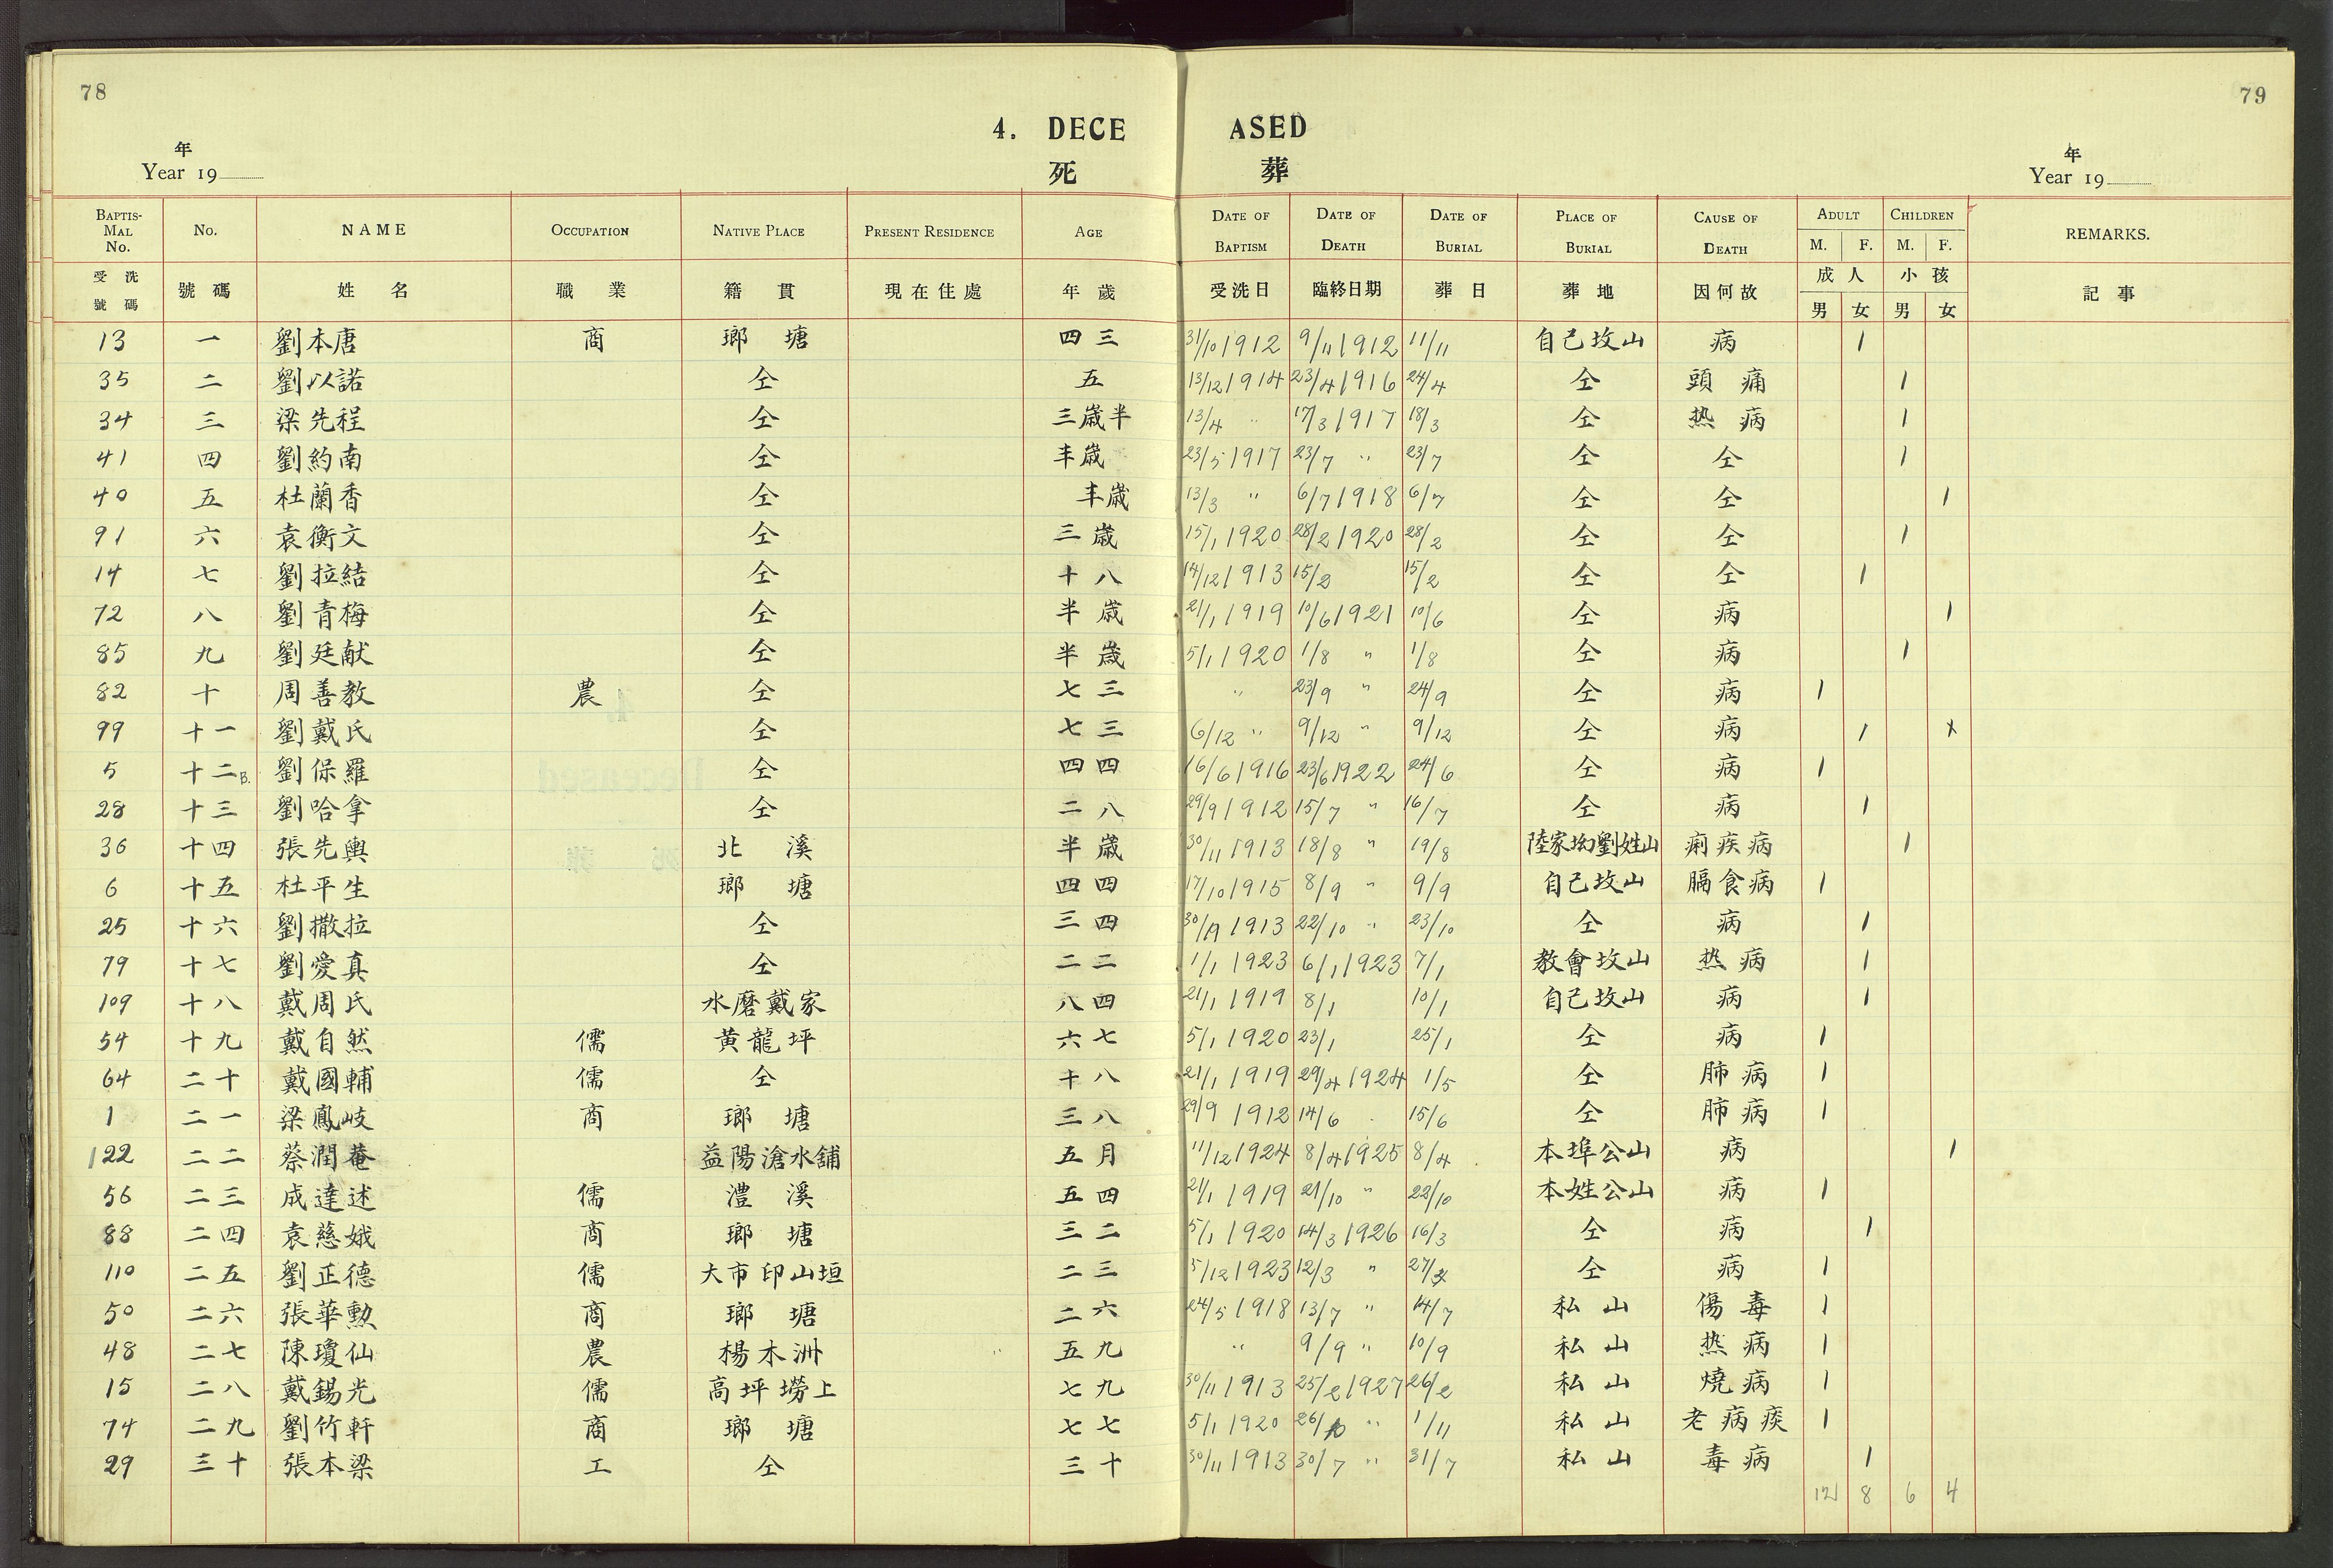 78
79
4. DECEASED
死 葬
年
Year 19
年
Year 19
BAPTISMAL No. No. NAME OCCUPATION NATIVE PLACE PRESENT RESIDENCE AGE DATE OF BAPTISM DATE OF DEATH DATE OF BURIAL PLACE OF BURIAL CAUSE OF DEATH ADULT M. F. CHILDREN M. F. REMARKS.
受洗號碼 號碼 姓名 職業 籍貫 現在住處 年歲 受洗日 臨終日期 葬日 葬地 因何故 成人 男 女 小孩 男 女 記事
13 一 劉本唐 商 瑯塘 四三 31/10 1912 9/11 1912 11/11 自己坟山 病 1
35 二 劉以諾 仝 五 13/12 1914 23/4 1916 24/4 仝 頭痛 1
34 三 梁先程 仝 三歲半 13/4 " 17/3 1917 18/3 仝 热病 1
41 四 劉約南 仝 半歲 23/5 1917 23/7 " 23/7 仝 仝 1
40 五 杜蘭香 仝 半歲 13/3 " 6/7 1918 6/7 仝 仝 1
91 六 袁衡文 仝 三歲 15/1 1920 28/2 1920 28/2 仝 仝 1
14 七 劉拉結 仝 十八 14/12 1913 15/2 15/2 仝 仝 1
72 八 劉青梅 仝 半歲 21/1 1919 10/6 1921 10/6 仝 病 1
85 九 劉廷献 仝 半歲 5/1 1920 1/8 " 1/8 仝 病 1
82 十 周善教 農 仝 七三 " 23/9 " 24/9 仝 病 1
99 十一 劉戴氏 仝 七三 6/12 " 9/12 " 9/12 仝 病 1 x
5 十二B. 劉保羅 仝 四四 16/6 1916 23/6 1922 24/6 仝 病 1
28 十三 劉哈拿 仝 二八 29/9 1912 15/7 " 16/7 仝 病 1
36 十四 張先輿 北溪 半歲 30/11 1913 18/8 " 19/8 陸家坳劉姓山 痢疾病 1
6 十五 杜平生 瑯塘 四四 17/10 1915 8/9 " 9/9 自己坟山 膈食病 1
25 十六 劉撒拉 仝 三四 1913 22/10 " 23/10 仝 病 1
79 十七 劉愛真 仝 二二 1/1 1923 6/1 1923 7/1 教會坟山 热病 1
109 十八 戴周氏 水磨戴家 八四 21/1 1919 8/1 10/1 自己坟山 病 1
54 十九 戴自然 儒 黄龍坪 六七 5/1 1920 23/1 25/1 仝 病 1
64 二十 戴國輔 儒 仝 十八 21/1 1919 29/4 1924 1/5 仝 肺病 1
1 二一 梁鳳岐 商 瑯塘 三八 29/9 1912 14/6 15/6 仝 肺病 1
122 二二 蔡潤菴 益陽滄水舖 五月 11/12 1924 8/4 1925 8/4 本埠公山 病 1
56 二三 成達述 儒 澧溪 五四 21/1 1919 21/10 " 22/10 本姓公山 病 1
88 二四 袁慈娥 商 瑯塘 三二 5/1 1920 14/3 1926 16/3 仝 病 1
110 二五 劉正德 儒 大市印山垣 二三 5/12 1923 12/3 " 仝 病 1
50 二六 張華勲 商 瑯塘 二六 24/5 1918 13/7 " 14/7 私山 傷毒 1
48 二七 陳瓊仙 農 楊木洲 五九 " 9/9 " 10/9 私山 热病 1
15 二八 戴錫光 儒 高坪塝上 七九 30/11 1913 25/2 1927 26/2 私山 燒病 1
74 二九 劉竹軒 商 瑯塘 七七 5/1 1920 26/10 " 1/11 私山 老病痰 1
29 三十 張本梁 工 仝 三十 30/11 1913 30/7 " 31/7 私山 毒病 1
12 8 6 4